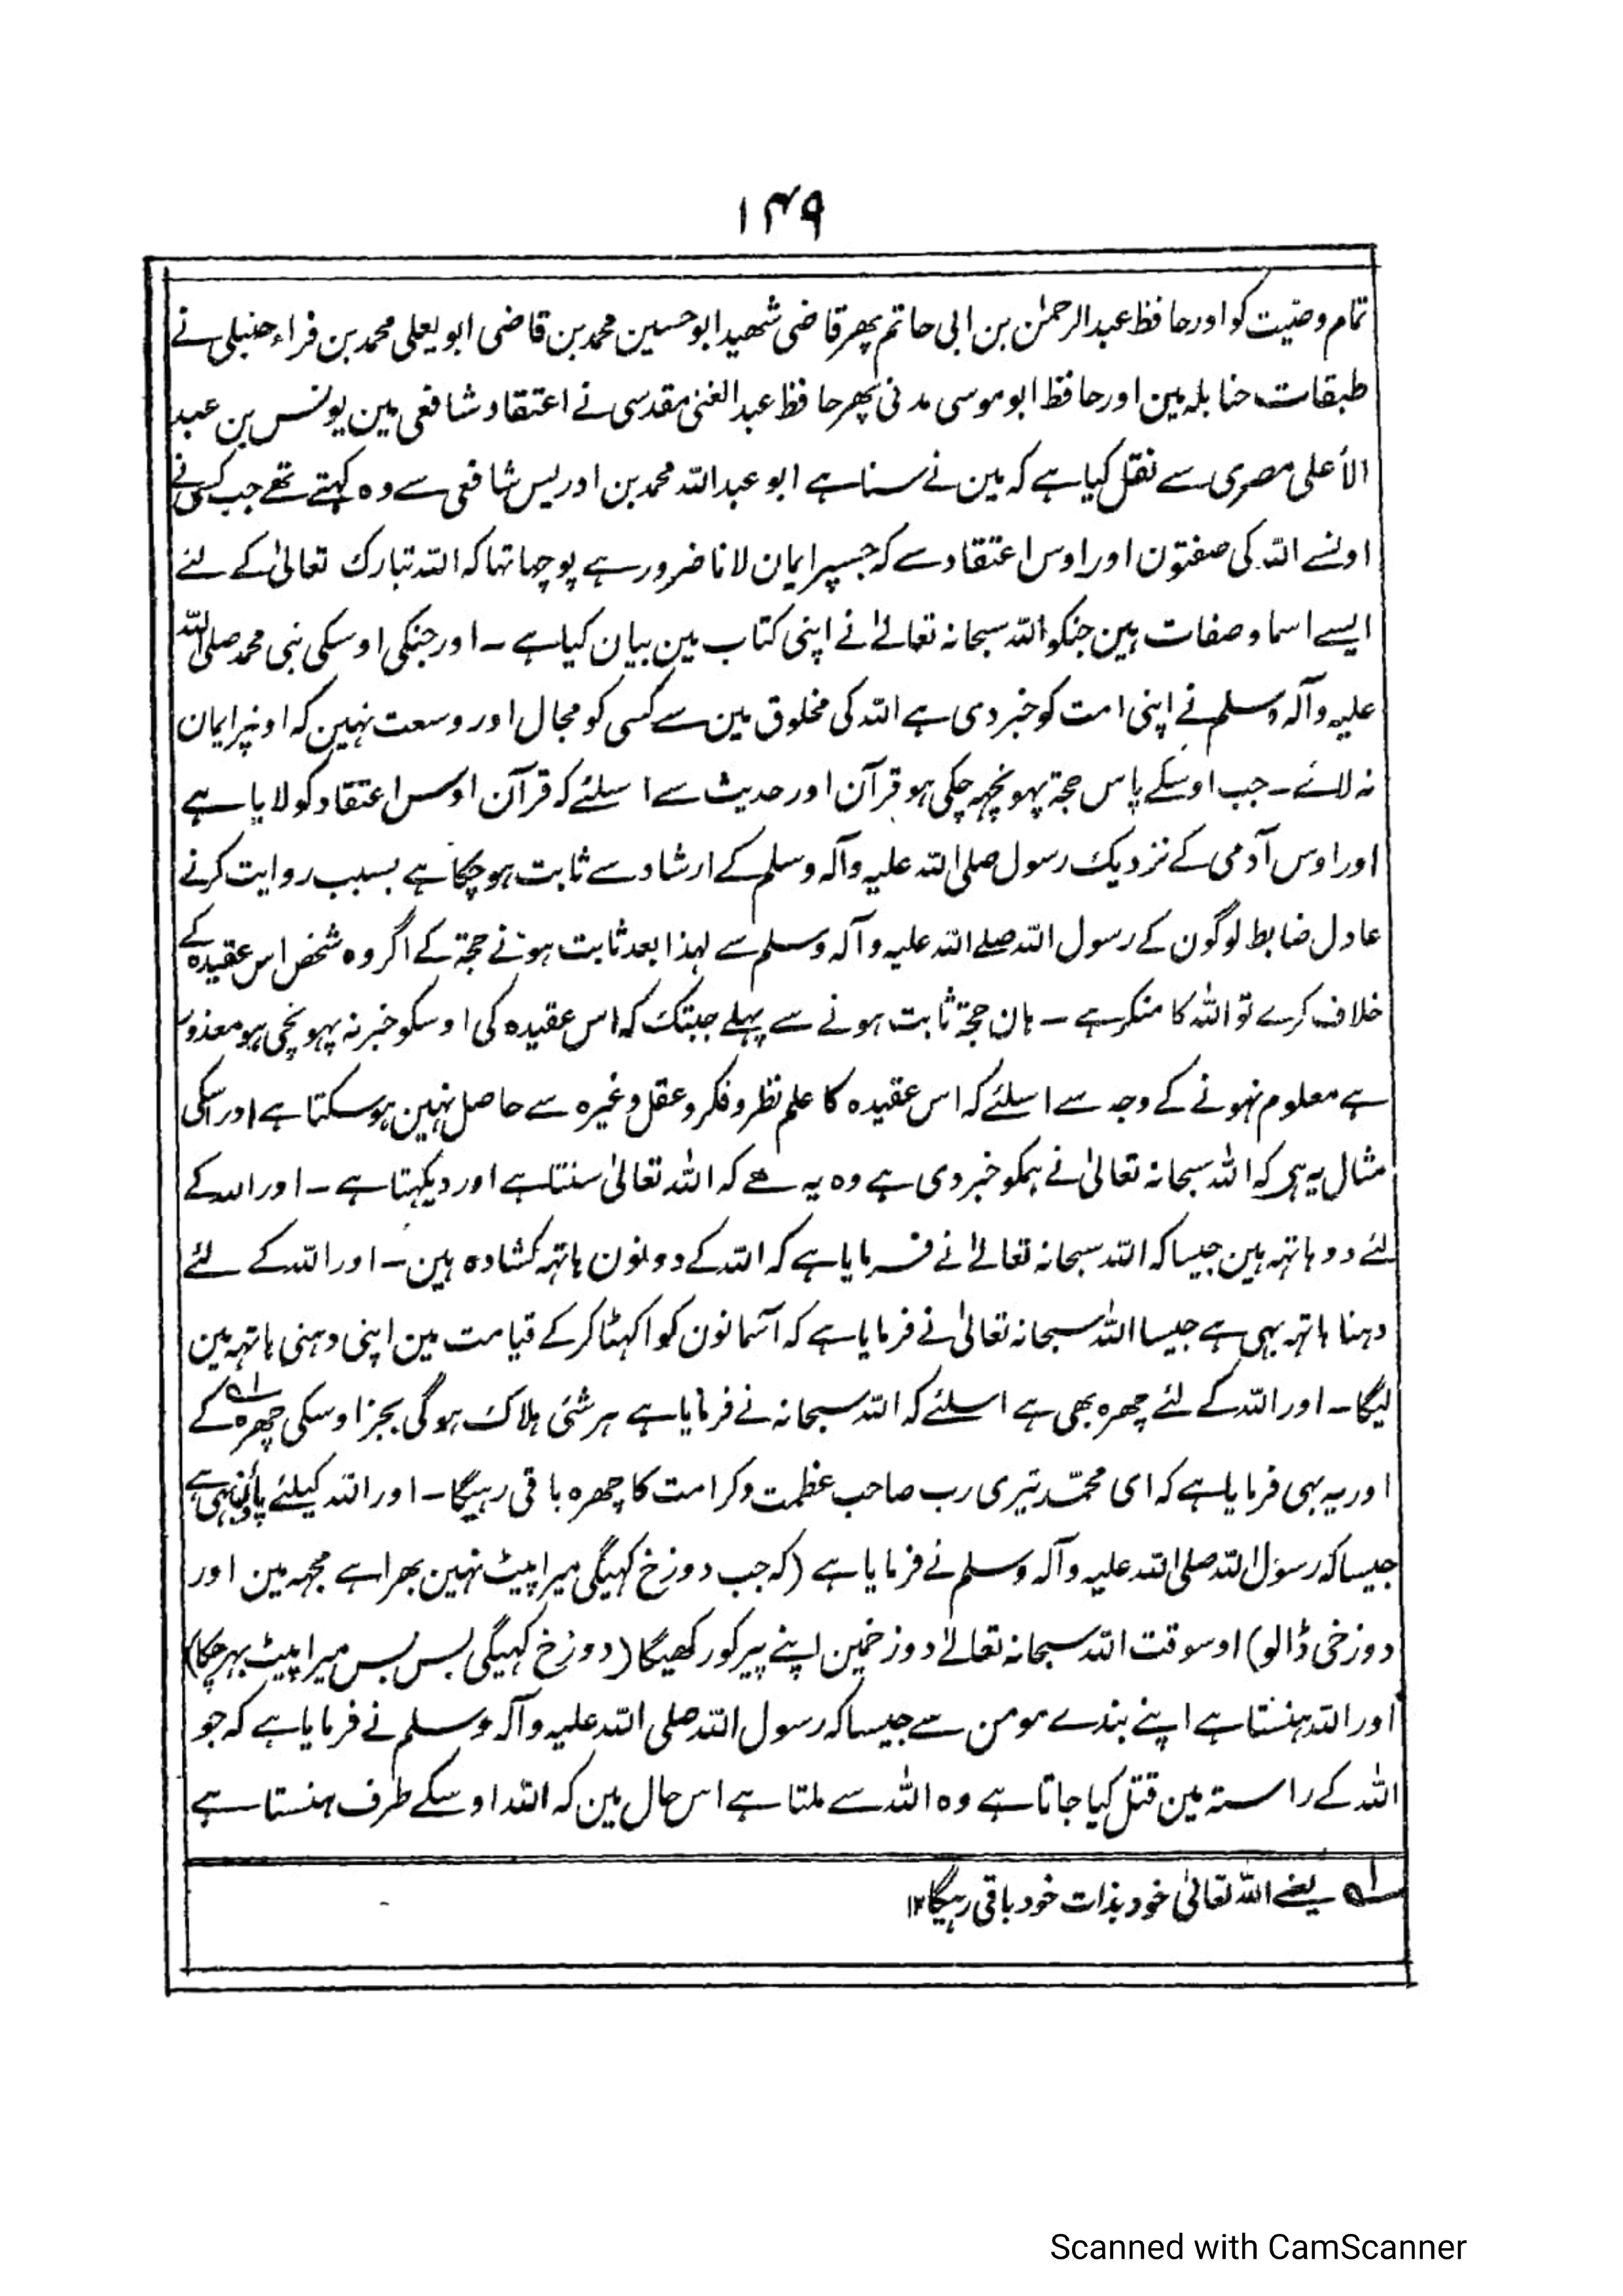 ۱۴۹
تمام وصیت کو اور حافظ عبدالرحمٰن بن ابی حاتم پھر قاضی شھید ابو حسین محمد بن قاضی ابو یعلی محمد بن فراء حنبلی نے
طبقات حنابلہ مین اور حافظ ابو موسی مدنی پھر حافظ عبدالغنی مقدسی نے اعتقاد شافعی مین یونس بن عبد
الأعلی مصری سے نقل کیا ہے کہ مین نے سنا ہے ابو عبداللہ محمد بن ادریس شافعی سے وہ کہتے تھے جب کسی نے
اونسے اللہ کی صفتون اور اوس اعتقاد سے کہ جسپر ایمان لانا ضرور ہے پوچہا تہا کہ اللہ تبارک تعالیٰ کے لئے
ایسے اسما و صفات ہین جنکو اللہ سبحانہ تعالےٰ نے اپنی کتاب مین بیان کیا ہے ۔ اور جنکی اوسکی نبی محمد صلی اللہ
علیہ وآلہ وسلم نے اپنی امت کو خبر دی ہے اللہ کی مخلوق مین سے کسی کو مجال اور وسعت نہین کہ اونپر ایمان
نہ لائے ۔ جب اوسکے پاس حجۃ پہونچہ چکی ہو قرآن اور حدیث سے اسلئے کہ قرآن اوس اعتقاد کو لایا ہے
اور اوس آدمی کے نزدیک رسول صلی اللہ علیہ وآلہ وسلم کے ارشاد سے ثابت ہو چکا ہے بسبب روایت کرنے
عادل ضابط لوگون کے رسول اللہ صلے اللہ علیہ وآلہ وسلم سے لہذا بعد ثابت ہونے حجۃ کے اگر وہ شخص اس عقیدہ کے
خلاف کرے تو اللہ کا منکر ہے ۔ ہان حجۃ ثابت ہونے سے پہلے جبتک کہ اس عقیدہ کی اوسکو خبر نہ پہونچی ہو معذور
ہے معلوم نہونے کے وجہ سے اسلئے کہ اس عقیدہ کا علم نظر و فکر و عقل وغیرہ سے حاصل نہین ہوسکتا ہے اور اسکی
مثال یہ ہی کہ اللہ سبحانہ تعالیٰ نے ہمکو خبر دی ہے وہ یہ ھے کہ اللہ تعالیٰ سنتا ہے اور دیکہتا ہے ۔ اور اللہ کے
لئے دو ہاتہہ ہین جیسا کہ اللہ سبحانہ تعالےٰ نے فرمایا ہے کہ اللہ کے دونون ہاتہہ کشادہ ہین ۔ اور اللہ کے لئے
دہنا ہاتہہ بہی ہے جیسا اللہ سبحانہ تعالیٰ نے فرمایا ہے کہ آسمانون کو اکہٹا کر کے قیامت مین اپنی دہنی ہاتہہ مین
لیگا ۔ اور اللہ کے لئے چھرہ بھی ہے اسلئے کہ اللہ سبحانہ نے فرمایا ہے ہر شئی ہلاک ہوگی بجز اوسکی چھرہ ؁۱ کے
اور یہ بہی فرمایا ہے کہ ای محمّد تیری رب صاحب عظمت و کرامت کا چھرہ باقی رہیگا ۔ اور اللہ کیلئے پاؤن بہی ہے
جیسا کہ رسول اللہ صلی اللہ علیہ وآلہ وسلم نے فرمایا ہے (کہ جب دوزخ کہیگی میرا پیٹ نہین بھرا ہے مجہہ مین اور
دوزخی ڈالو) اوسوقت اللہ سبحانہ تعالےٰ دوزخمین اپنے پیر کو رکھیگا (دوزخ کہیگی بس بس میرا پیٹ بہر چکا)
اور اللہ ہنستا ہے اپنے بندے مومن سے جیسا کہ رسول اللہ صلی اللہ علیہ وآلہ وسلم نے فرمایا ہے کہ جو
اللہ کے راستہ مین قتل کیا جاتا ہے وہ اللہ سے ملتا ہے اس حال مین کہ اللہ اوسکے طرف ہنستا ہے
؁۱ یعنے اللہ تعالیٰ خود بذات خود باقی رہیگا ۱۲
Scanned with CamScanner